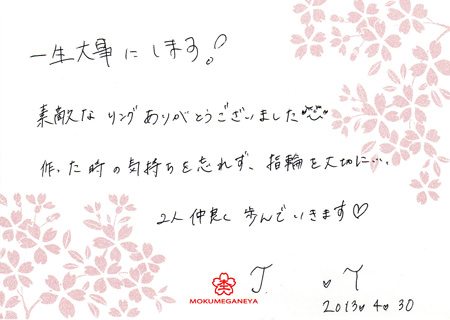 一生大事にします!
素敵なリングありがとうございました
作った時の気持ちを忘れず、指輪を大切に…、
2人仲良く歩んでいきます♡
J. ♥Y
2013♥4♥30
MOKUMEGANEYA